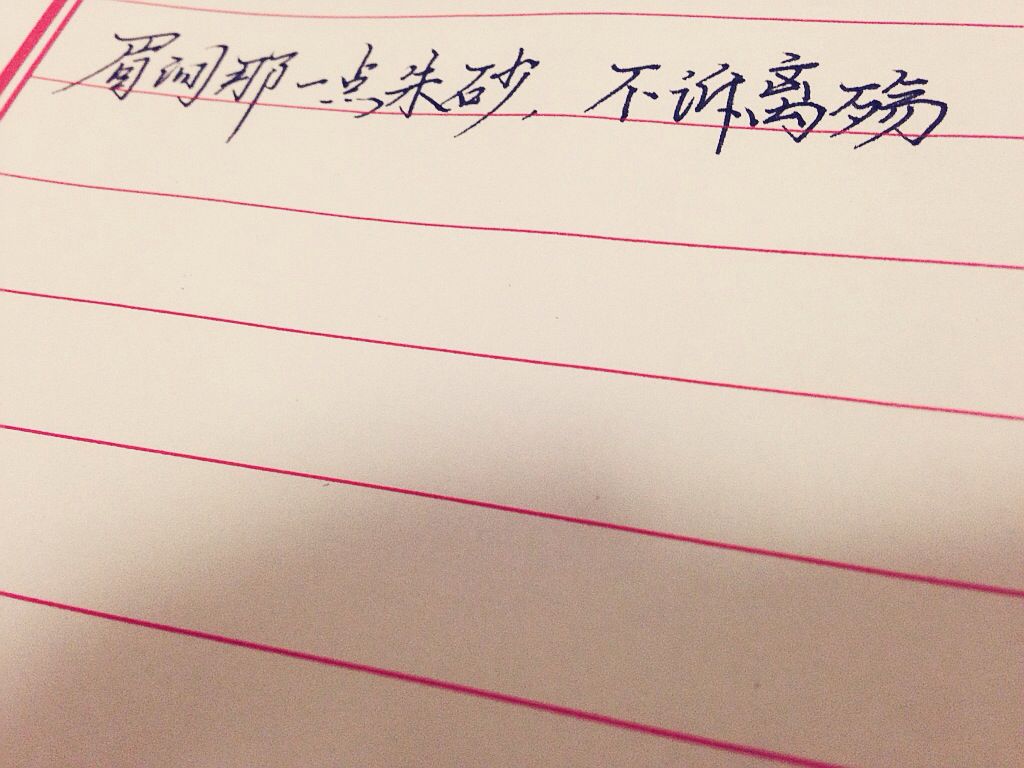 眉间那一点朱砂，不诉离殇